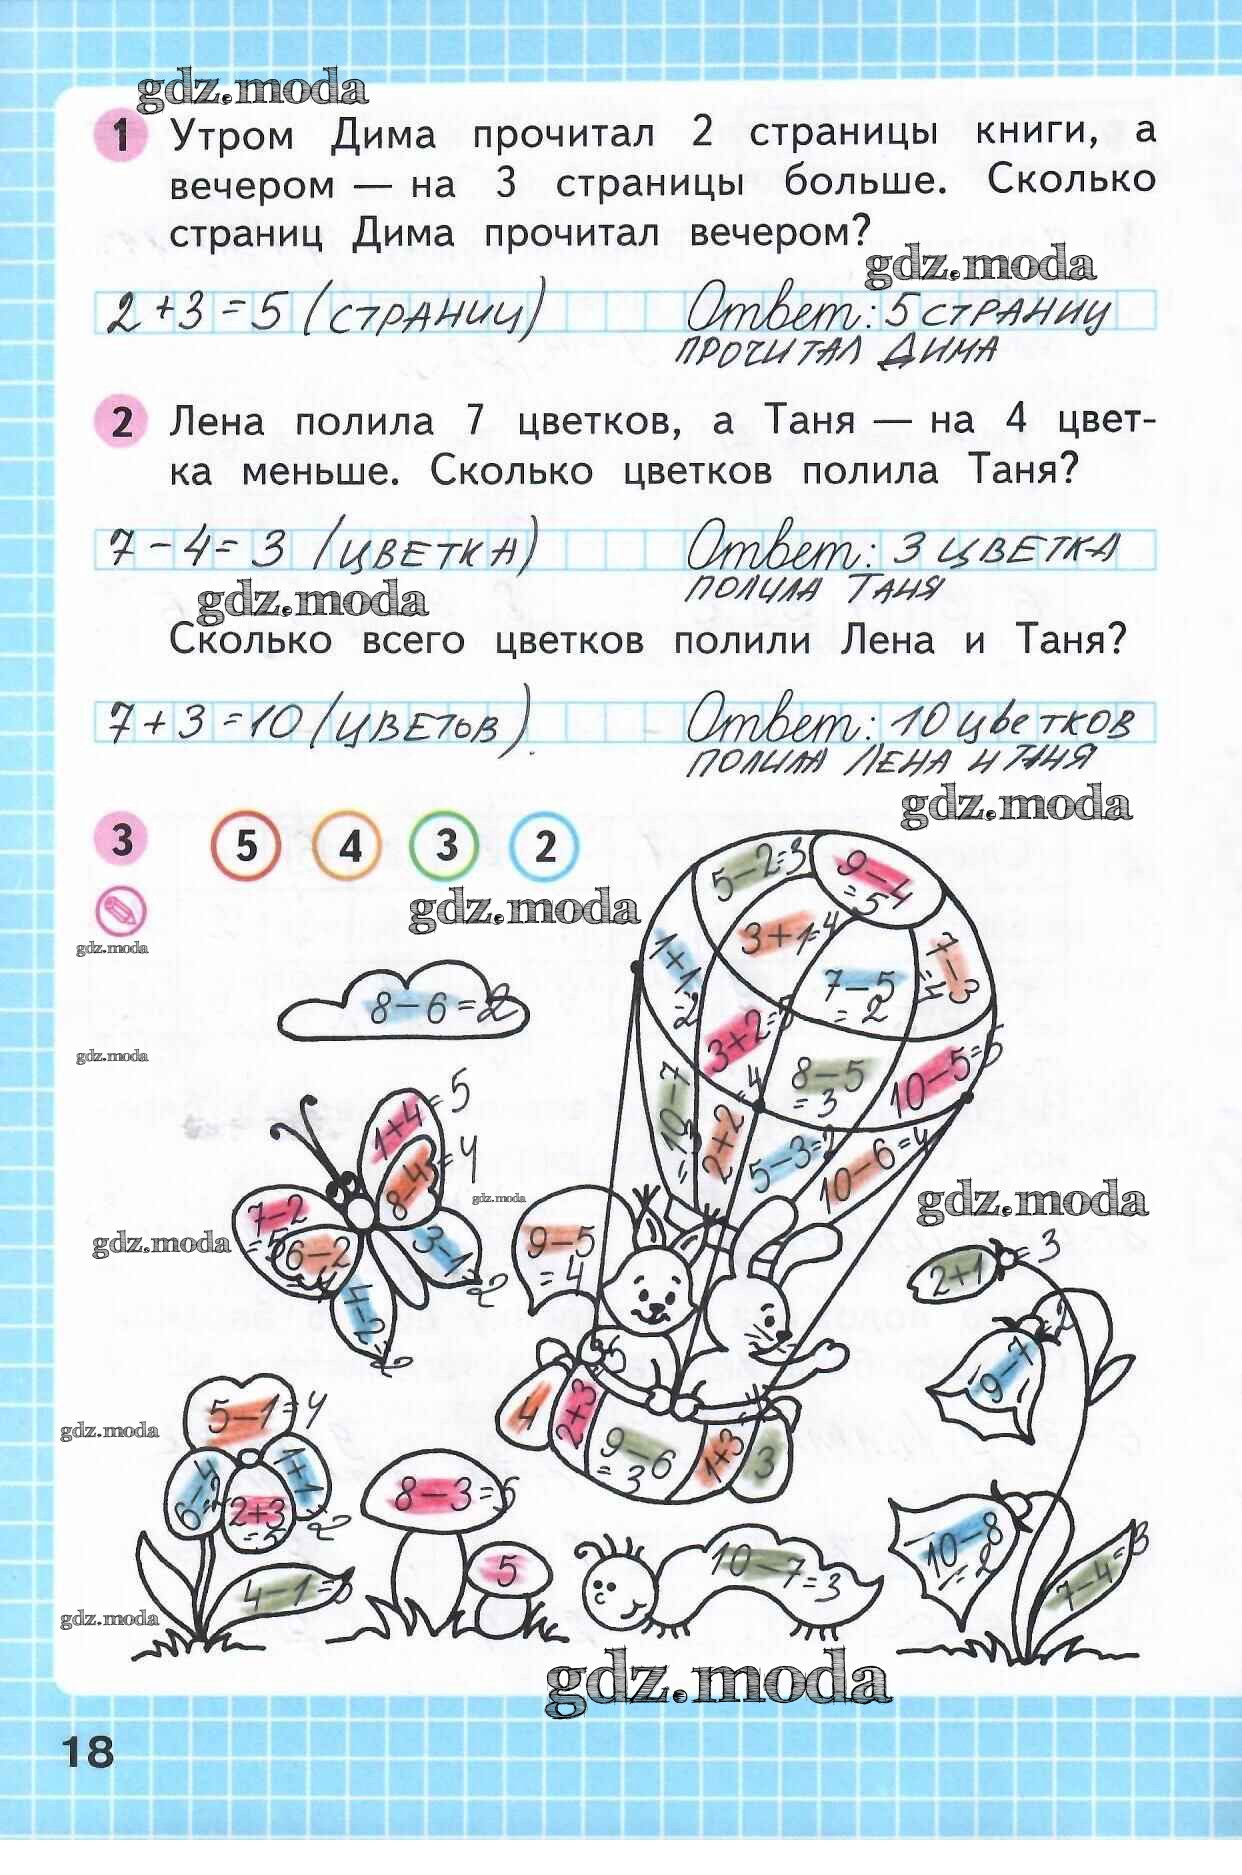 gdz.moda
1 Утром Дима прочитал 2 страницы книги, а
вечером — на 3 страницы больше. Сколько
страниц Дима прочитал вечером?
gdz.moda
2+3=5 (СТРАНИЦ) Ответ: 5 СТРАНИЦ
ПРОЧИТАЛ ДИМА
2 Лена полила 7 цветков, а Таня — на 4 цвет-
ка меньше. Сколько цветков полила Таня?
7-4=3 (ЦВЕТКА) Ответ: 3 ЦВЕТКА
ПОЛИЛА ТАНЯ
gdz.moda
Сколько всего цветков полили Лена и Таня?
7+3=10 (ЦВЕТЬВ). Ответ: 10 цветков
ПОЛИЛА ЛЕНА И ТАНЯ
gdz.moda
3 5 4 3 2
5-2=3
9-4
=5
gdz.moda
gdz.moda
3+1=4
1+1
=2
7-3
=4
7-5
=2
8-6=2
3+2=5
gdz.moda
8-5
=3
10-5=5
10-7
=3
2+2=4
5-3=2
10-6=4
1+4=5
8-4=4
gdz.moda
gdz.moda
7-2
=5
6-2
3-1
2
4-2
2
gdz.moda
9-5
=4
2+1=3
9-7=2
gdz.moda
5-1=4
6-4
2
1+1
2
2+3
=5
4-1=3
4
2+3
5
9-6
=3
1+3
3
8-3=5
5
10-7=3
10-8
=2
7-4=3
gdz.moda
gdz.moda
18